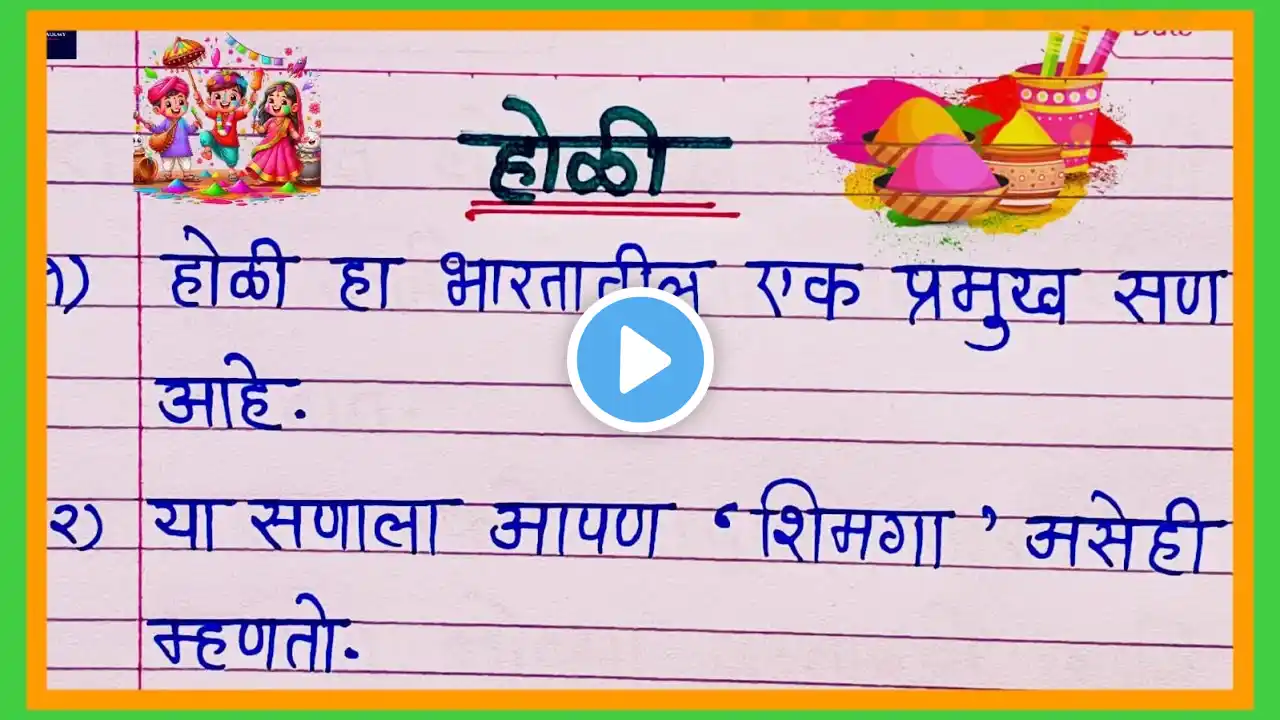 होळी
१) होळी हा भारतातील एक प्रमुख सण
आहे.
२) या सणाला आपण ‘शिमगा’ असेही
म्हणतो.